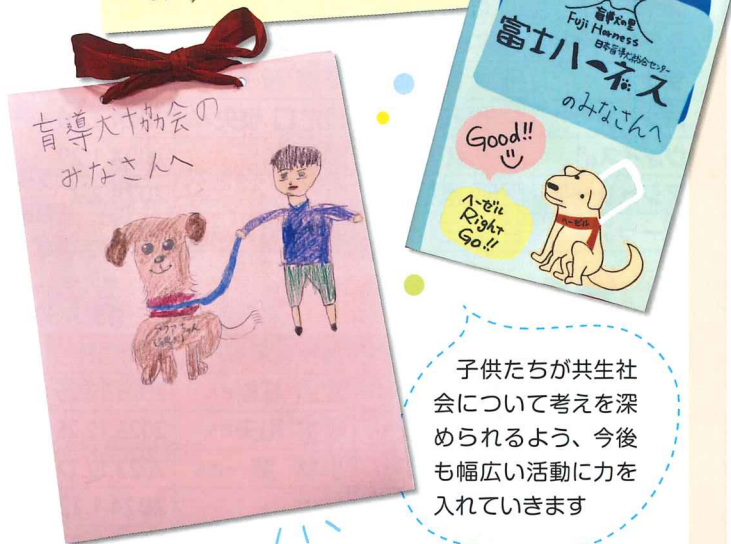 盲導犬協会の
みなさんへ
盲導犬の里
Fuji Harness
日本盲導犬総合センター
富士ハーネス
のみなさんへ
Good!!
ヘーゼル
Right
Go!!
ヘーゼル
子供たちが共生社
会について考えを深
められるよう、今後
も幅広い活動に力を
入れていきます